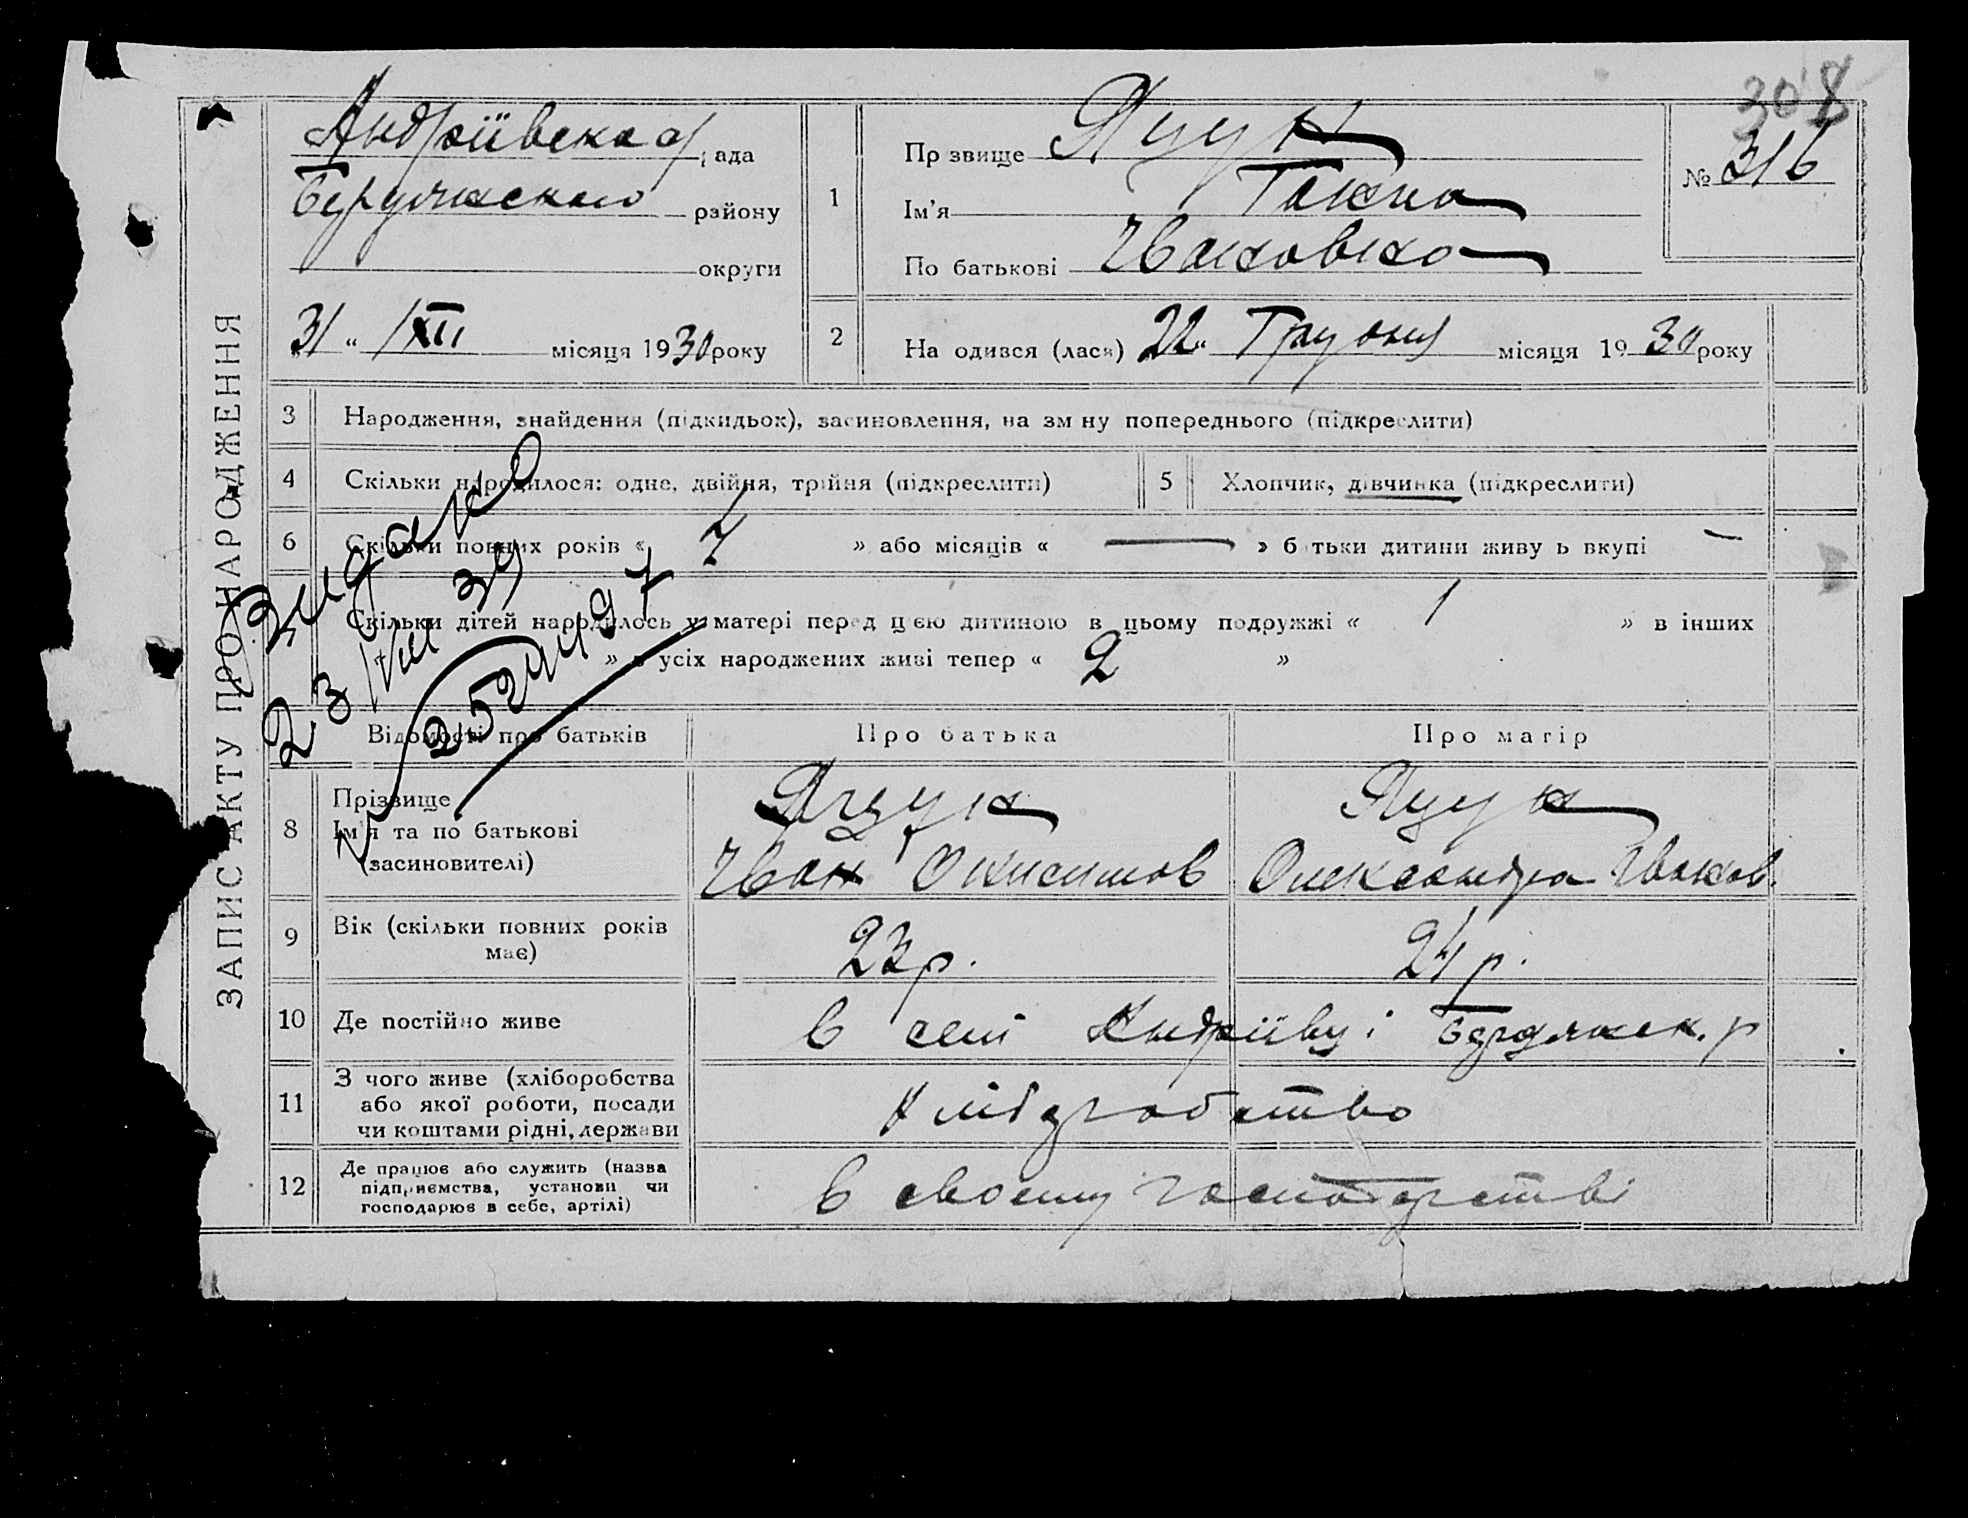 308
ЗАПИС АКТУ ПРО НАРОДЖЕННЯ
Андріївска рада
Бердянского району
округи
31 " XII місяця 1930 року
1
Прзвище Яцук
Ім'я
По батькові Івановна
№ 316
2
На одився (лася) 22 " Грудня місяця 1930 року
3 Народження, знайдення (підкидьок), засиновлення, на зм ну попереднього (підкреслити)
4 Скільки народилося: одне, двійня, трійня (підкреслити)
5 Хлопчик, дівчинка (підкреслити)
6 Скільки повних років « 7 » або місяців « — » б тьки дитини живу ь вкупі —
Скільки дітей народилось у матері перед цією дитиною в цьому подружжі « 1 » в інших
» з усіх народжених живі тепер « 2 »
23/VIII 39
Відомості про батьків
Про батька
Про матір
8 Прізвище
Ім'я та по батькові
(засиновителі)
Яцук
Іван Онисимов
Яцук
Олександра Іванов.
9 Вік (скільки повних років має)
23 р.
24 р.
10 Де постійно живе
в селі Андріївці Бердянск. р.
11 З чого живе (хліборобства
або якої роботи, посади
чи коштами рідні, держави
хліборобство
12 Де працює або служить (назва
підприємства, установи чи
господарює в себе, артілі)
в своему господарстві